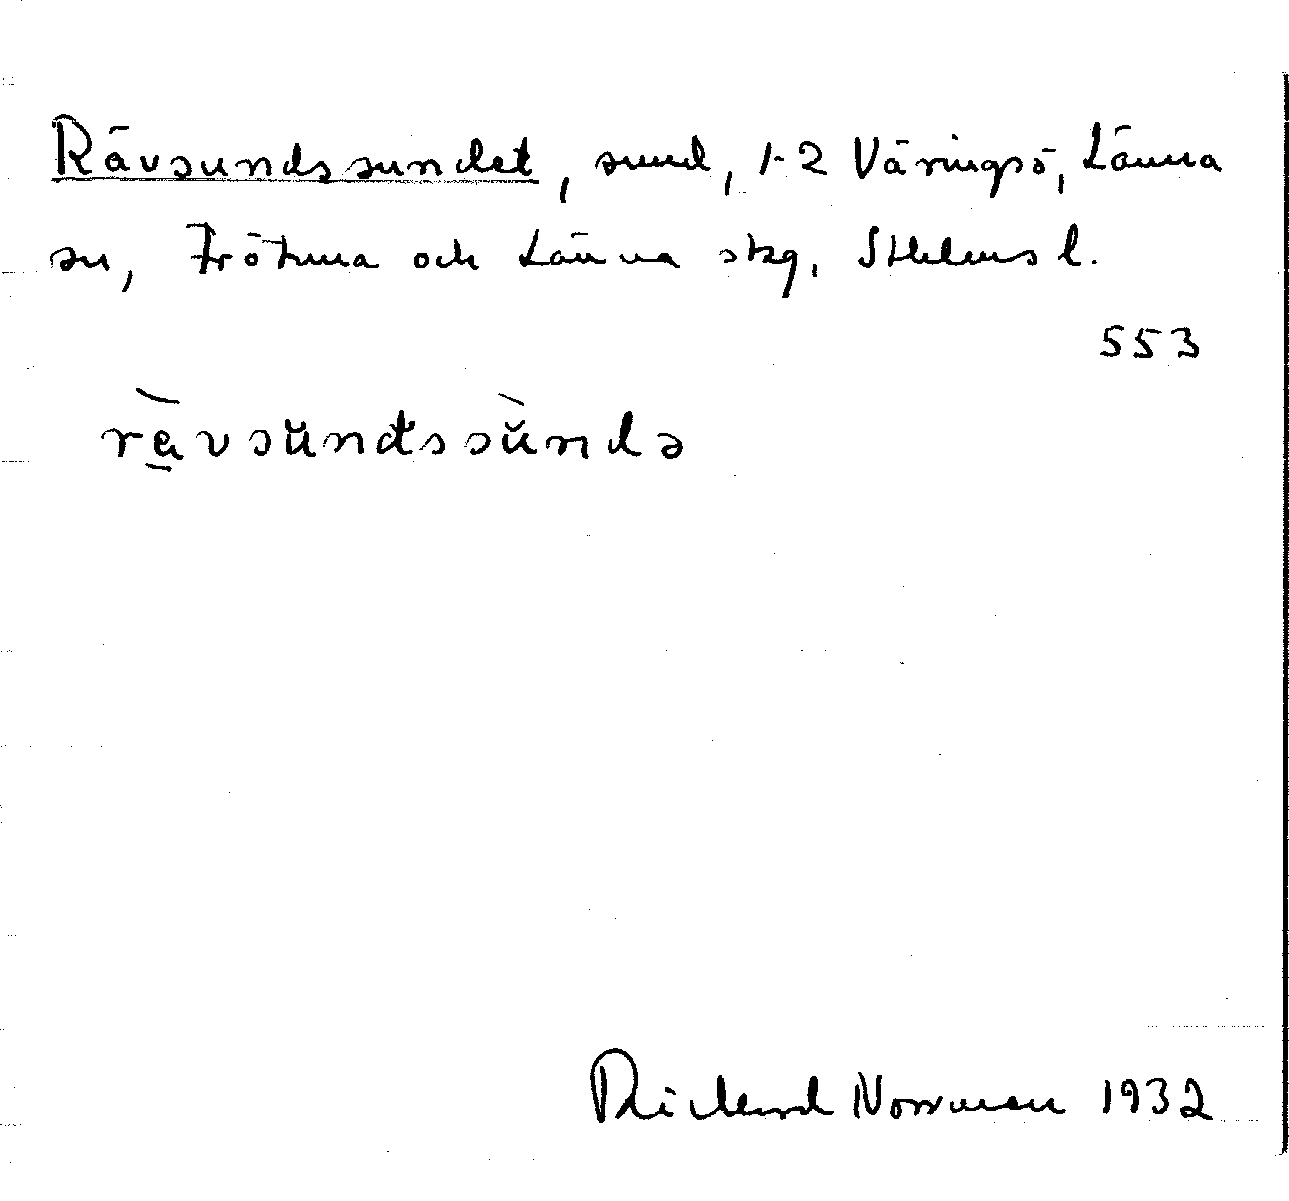 Rävsundssundet, sund, 1-2 Väringsö, Länna
sn, Frötuna och Länna skg, Sthlms l.
553
rävsundssundə
Rickard Norrman 1932